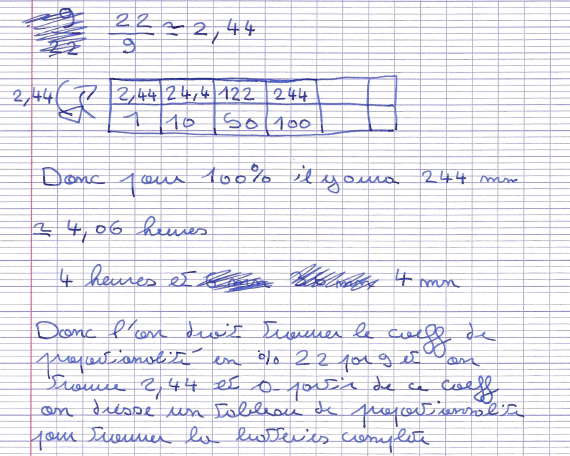 9 22 ≈ 2,44
22 9
2,44 2,44 24,4 122 244
1 10 50 100
Donc pour 100% il y aura 244 mn
≈ 4,06 heures
4 heures et 4 mn
Donc l'on droit trouver le coeff de
proportionalité en % 22 par 9 et on
trouve 2,44 et a partir de ce coeff
on dresse un tableau de proportionnalite
pour trouver la batteries complete